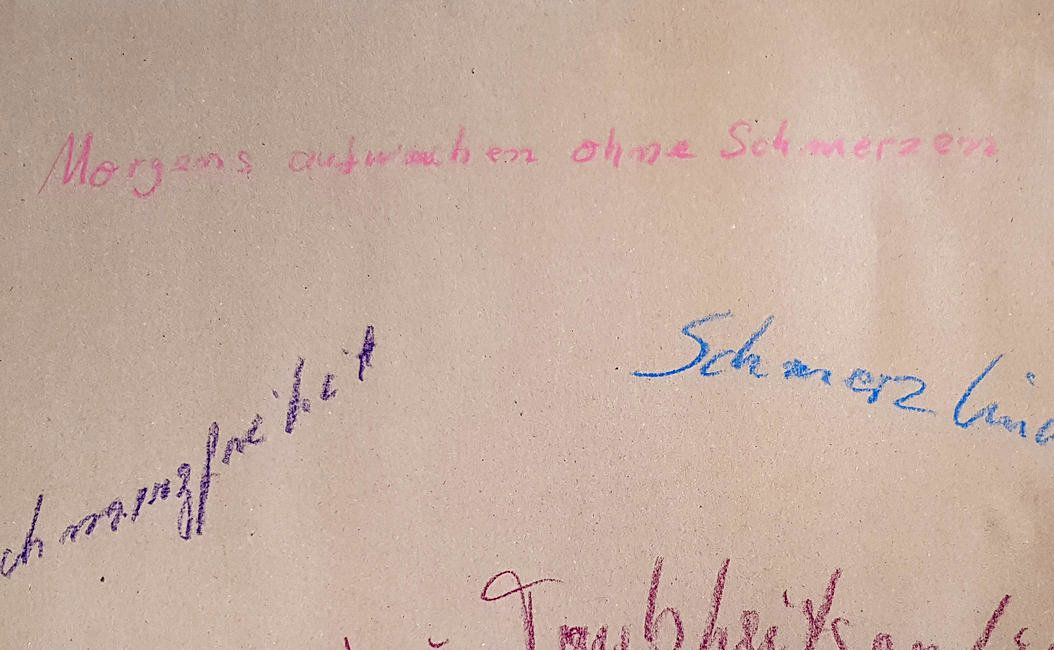 Morgens aufwachen ohne Schmerzen
Schmerz lind
chmerzfreiheit
Taubheits